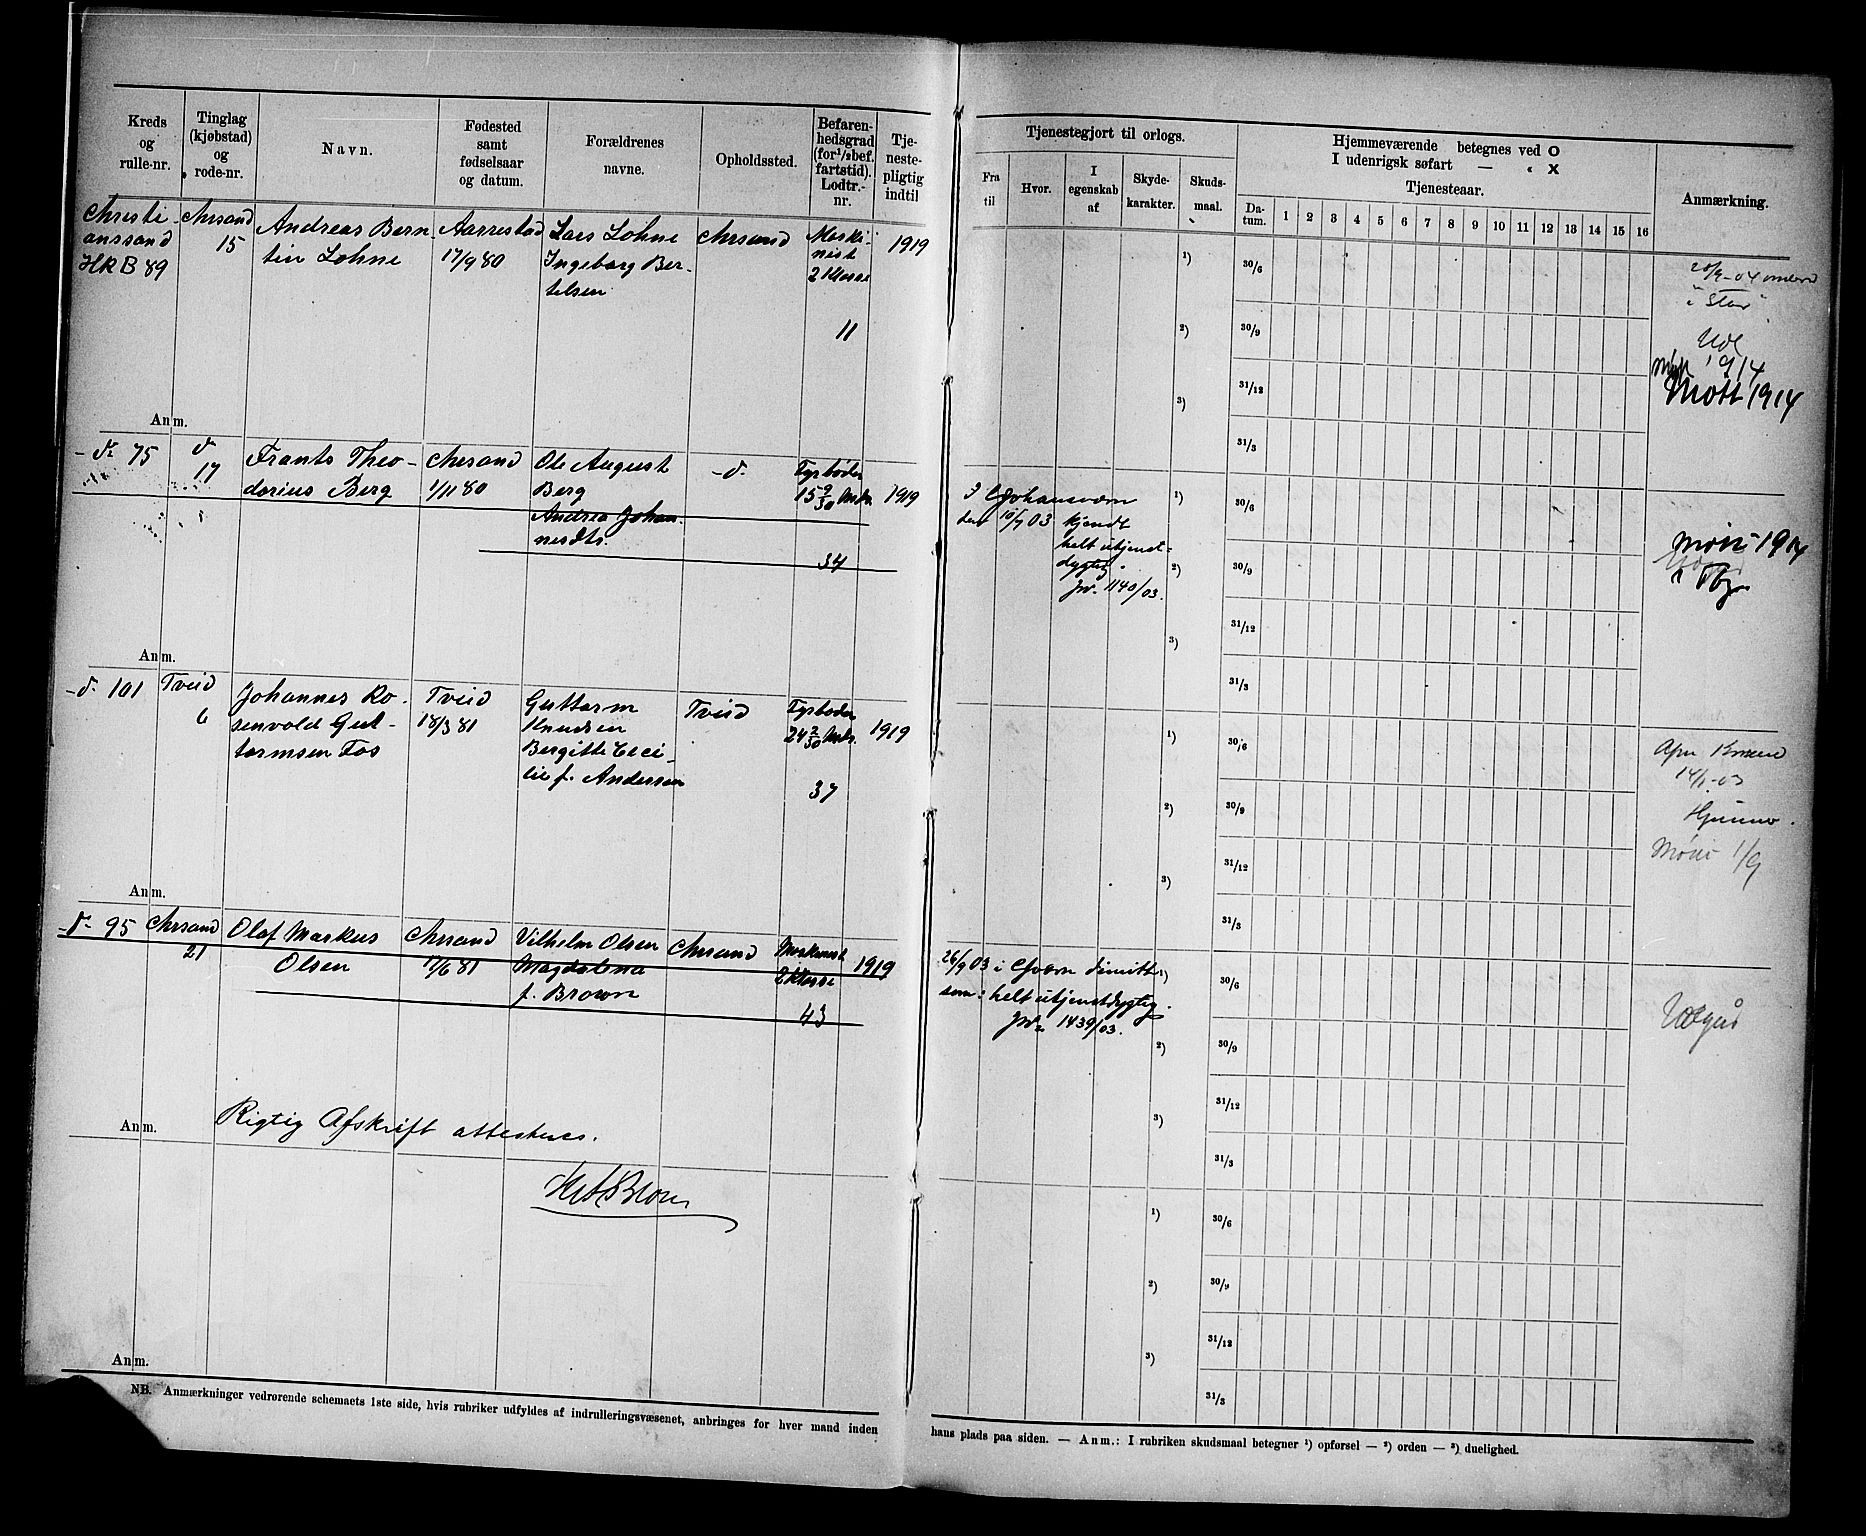 Kreds og rulle-nr.
Tinglag (kjøbstad) og rode-nr.
Navn.
Fødested samt fødselsaar og datum.
Forældrenes navne.
Opholdssted.
Befaren-hedsgrad (for ½bef. fartstid). Lodtr.-nr.
Tje-neste-pligtig indtil
Tjenestegjort til orlogs.
Fra til
Hvor.
I egenskab af
Skyde-karakter.
Skuds-maal.
Hjemmeværende betegnes ved O
I udenrigsk søfart — " X
Tjenesteaar.
Da-tum. 1 2 3 4 5 6 7 8 9 10 11 12 13 14 15 16
Anmærkning.
Christi-
anssand
HR B 89
Chrsand
15
Andreas Bern-
tin Lohne
Aarrestad
17/9 80
Lars Lohne
Ingeborg Ber-
telsen
Chrsand
Maski-
nist
2 Klasse
11
1919
1) 30/6
2) 30/9
3) 31/12
31/3
i "Stav"
Ude
1914
Mött 1914
Anm.
-d- 75
d
17
Frants Theo-
dorius Berg
Chrsand
1/11 80
Ole August
Berg
Andrea Johan-
nesdtr.
-d-
Fyrbøder
15 9/30 Mdr.
34
1919
I Johansværn
den 10/7 03 kjendt
helt utjenst-
dygtig.
Jr. 1140/03.
1) 30/6
2) 30/9
3) 31/12
31/3
Møtt 1914
Anm.
-d- 101
Tveid
6
Johannes Ro-
senvold Gut-
tormsen Fos
Tveid
18/3 81
Guttorm
Knudsen
Bergitte Ceci-
lie f. Andersen
Tveid
Fyrbøder
24 2/30 Mdr.
37
1919
1) 30/6
2) 30/9
3) 31/12
31/3
Hjemme.
1/9
Anm.
-d- 95
Chrsand
21
Olaf Markus
Olsen
Chrsand
17/6 81
Vilhelm Olsen
Magdalena
f. Brown
Chrsand
Maskinist
2 Klasse
43
1919
26/9 03 i Hværn dimitt.
som: helt utjenstdygtig.
Jr. 1439/03.
1) 30/6
2) 30/9
3) 31/12
31/3
Udgaar
Anm.
Rigtig Afskrift attesteres.
1) 30/6
2) 30/9
3) 31/12
31/3
Anm.
NB. Anmærkninger vedrørende schemaets 1ste side, hvis rubriker udfyldes af indrulleringsvæsenet, anbringes for hver mand inden
hans plads paa siden. — Anm.: I rubriken skudsmaal betegner ¹) opførsel — ²) orden — ³) duelighed.